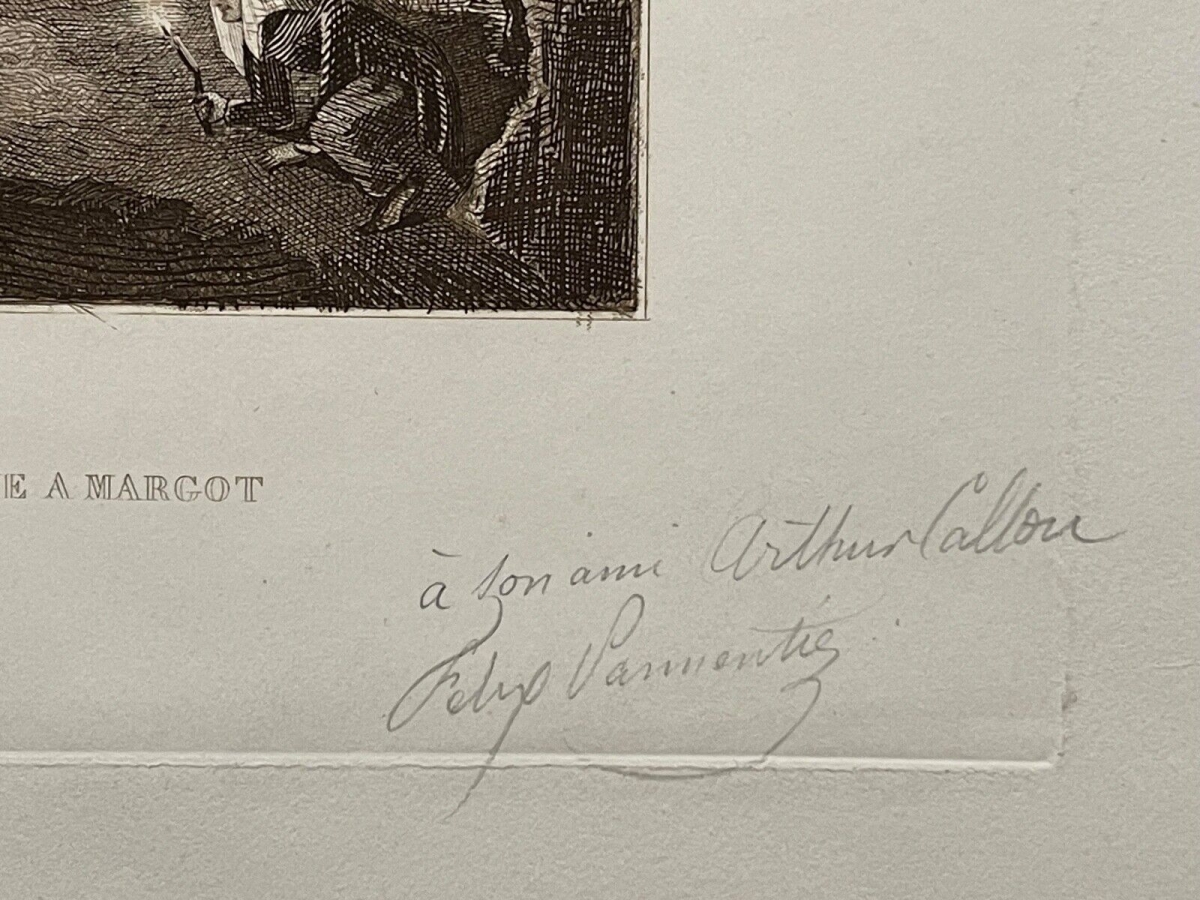 E A MARGOT
à son ami Arthur Callou
Felix Parmentié